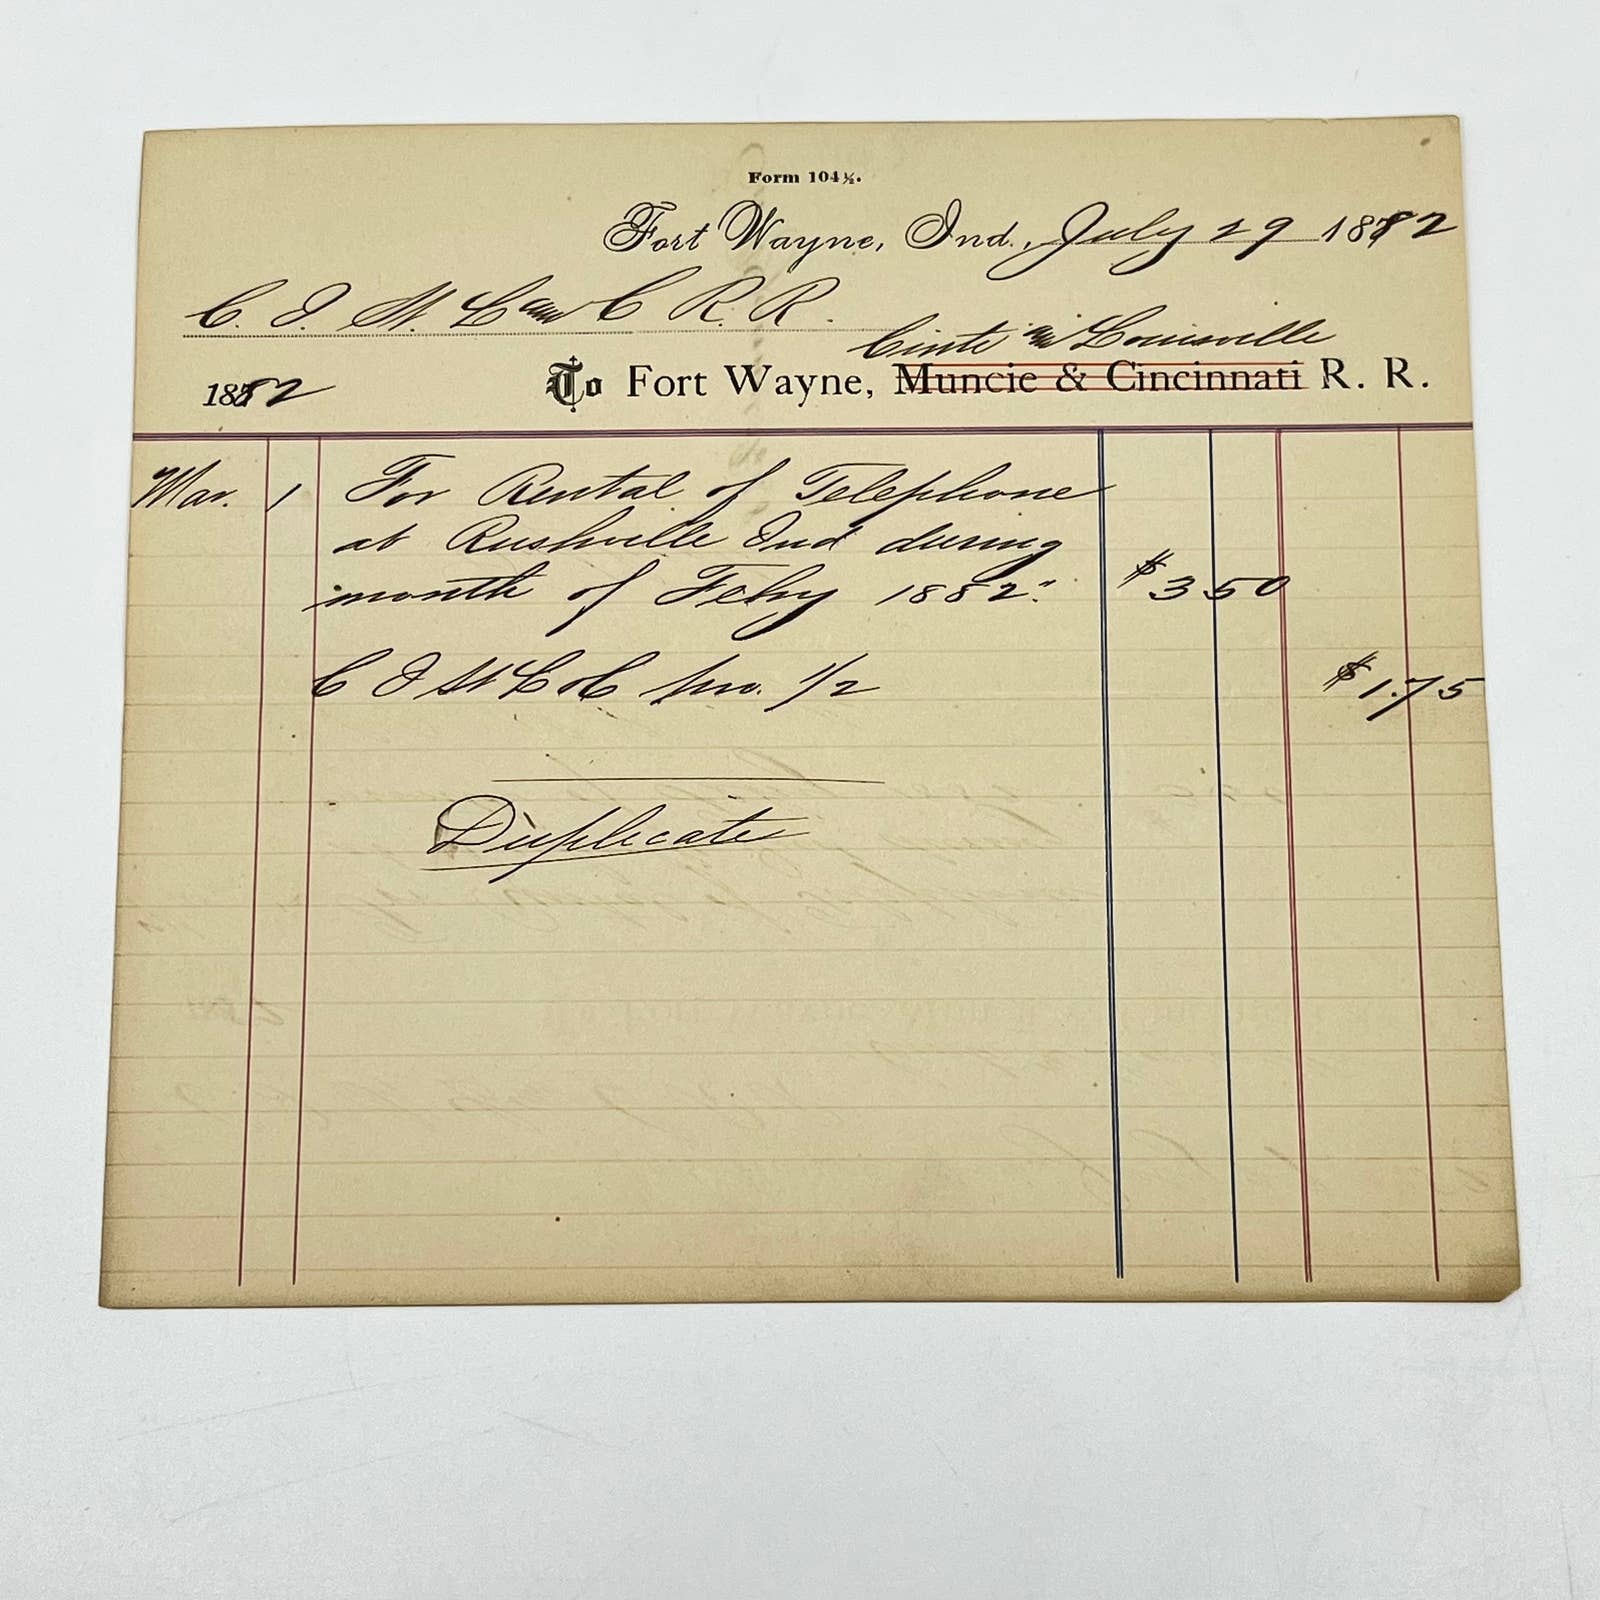 Form 104½.
Fort Wayne, Ind., July 29 1882
C. I. St. L and C R. R.
Cinti and Louisville
1882 To Fort Wayne, Muncie & Cincinnati R. R.
Mar. 1 For Rental of Telephone
at Rushville Ind during
month of Feby 1882. $3 50
C I St L & C 1/2 $1.75
Duplicate